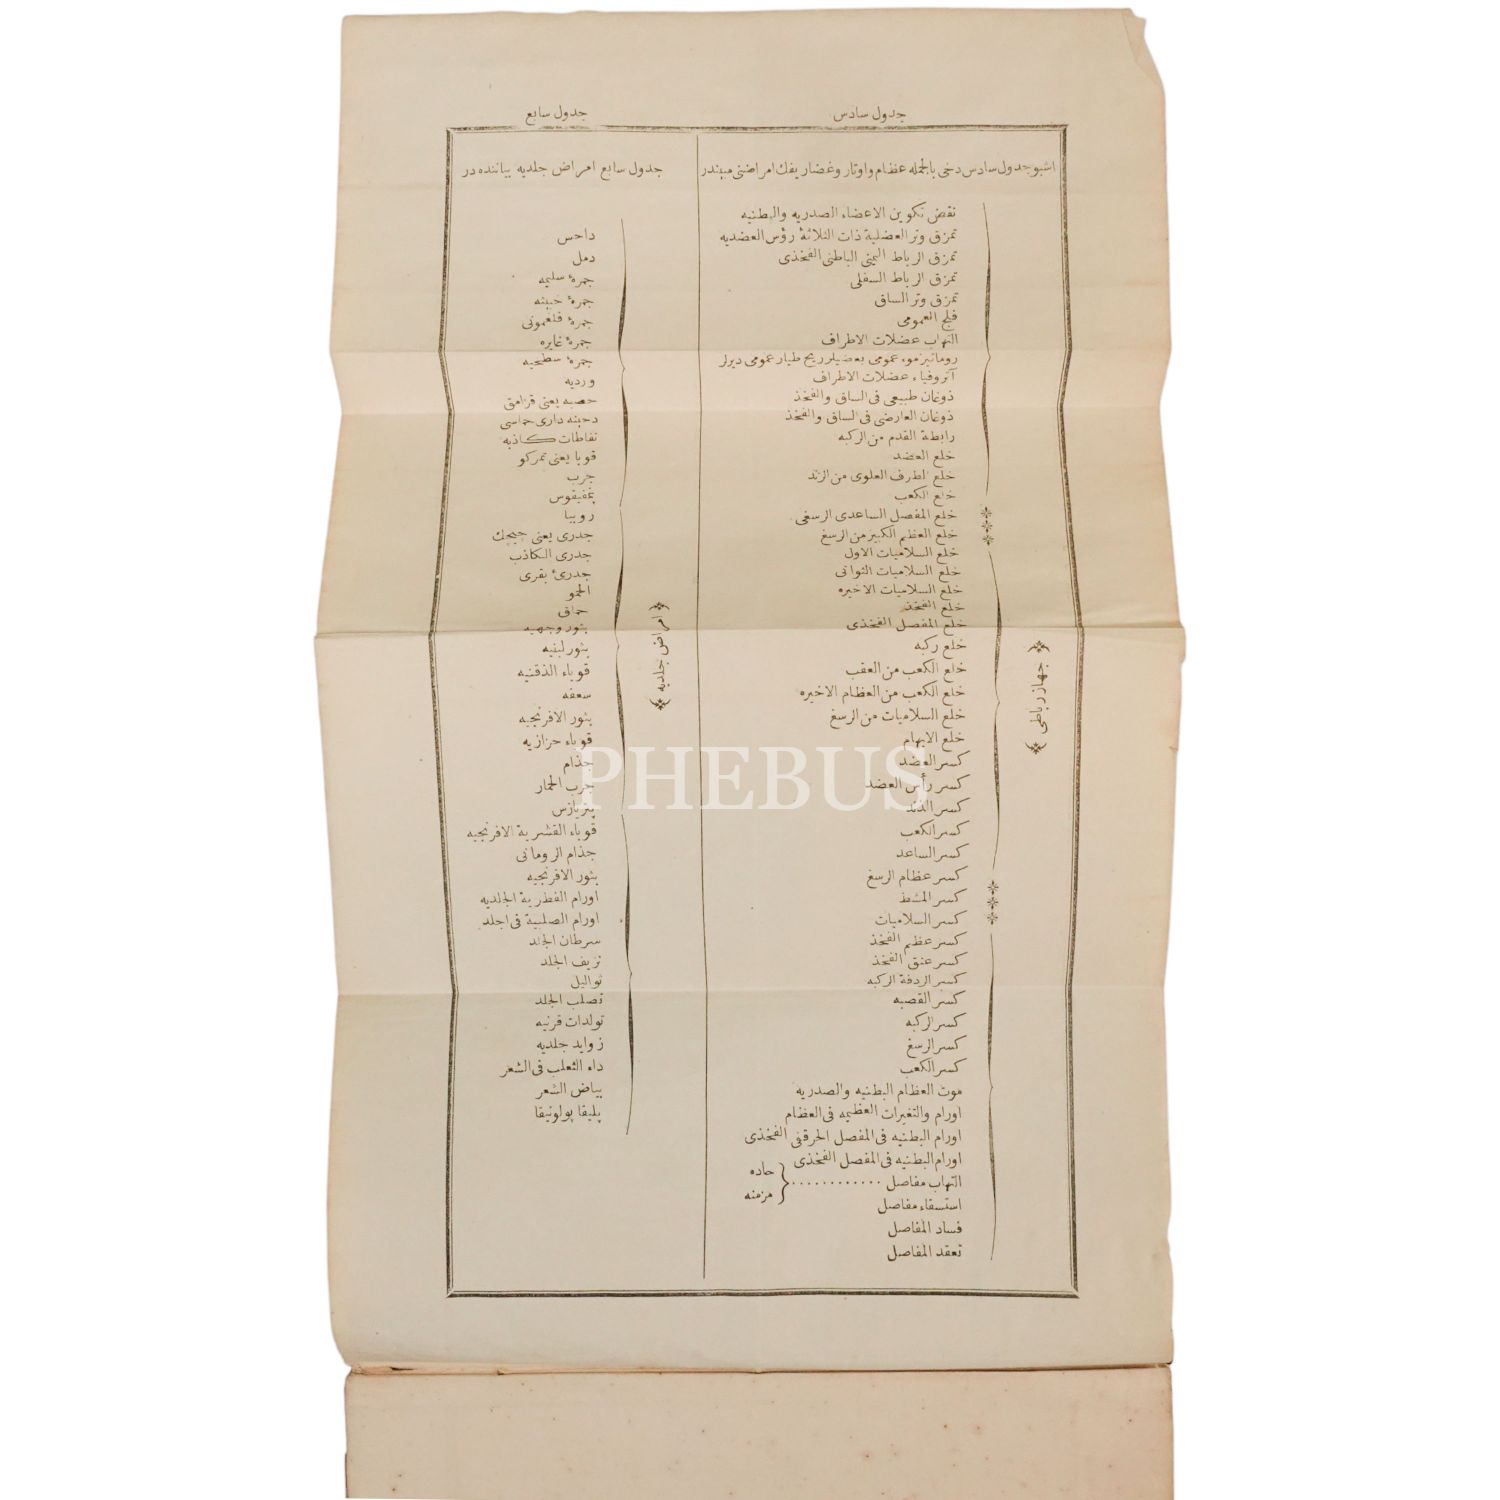 جدول سادس
اشبو جدول سادس دخى بالجمله عظام و اوتار و غضاريفك امراضنى مبيندر
﴿ جهاز رباطى ﴾
نقض تكوين الاعضاء الصدريه والبطنيه
تمزق وتر العضلية ذات الثلاثة رؤس العضديه
تمزق الرباط اليمنى الباطنى الفخذى
تمزق الرباط السفلى
تمزق وتر الساق
فلج العمومى
التهاب عضلات الاطراف
روماتيزموء عمومى بعضيلر ريح طيار عمومى ديرلر
آتروفياء عضلات الاطراف
ذوغان طبيعى فى الساق والفخذ
ذوغان العارضى فى الساق والفخذ
رابطة القدم من الركبه
خلع العضد
خلع الطرف العلوى من الزند
خلع الكعب
خلع المفصل الساعدى الرسغى
خلع العظم الكبير من الرسغ
خلع السلاميات الاول
خلع السلاميات الثوانى
خلع السلاميات الاخيره
خلع الفخذ
خلع المفصل الفخذى
خلع ركبه
خلع الكعب من العقب
خلع الكعب من العظام الاخيره
خلع السلاميات من الرسغ
خلع الابهام
كسر العضد
كسر رأس العضد
كسر الذند
كسر الكعب
كسر الساعد
كسر عظام الرسغ
كسر المشط
كسر السلاميات
كسر عظم الفخذ
كسر عنق الفخذ
كسر الردفة الركبه
كسر القصبه
كسر الركبه
كسر الرسغ
كسر الكعب
موت العظام البطنيه والصدريه
اورام والتغيرات العظيمه فى العظام
اورام البطنيه فى المفصل الحرقفى الفخذى
اورام البطنيه فى المفصل الفخذى
التهاب مفاصل ............ حاده
مزمنه
استسقاء مفاصل
فساد المفاصل
تعقد المفاصل
جدول سابع
جدول سابع امراض جلديه بياننده در
﴿ امراض جلديه ﴾
داحس
دمل
جمرۀ سليمه
جمرۀ خبيثه
جمرۀ فلغمونى
جمرۀ غايره
جمرۀ سطحيه
ورديه
حصبه يعنى قزامق
دخينه دارى حماسى
نفاطات كاذبه
قوبا يعنى تمركو
جرب
پمفيقوس
روپيا
جدرى يعنى چيچك
جدرى الكاذب
جدرئ بقرى
الحمو
حماق
بثور وجهيه
بثور لبنيه
قوباء الذقنيه
سعفه
بثور الافرنجيه
قوباء حزازيه
جذام
جرب الحمار
پتريازس
قوباء القشرية الافرنجيه
جذام الرومانى
بثور الافرنجيه
اورام الفطرية الجلديه
اورام الصلبية فى اجلد
سرطان الجلد
نزيف الجلد
ثواليل
تصلب الجلد
تولدات قرنيه
زوايد جلديه
داء الثعلب فى الشعر
بياض الشعر
پليقا پولونيقا
PHEBUS